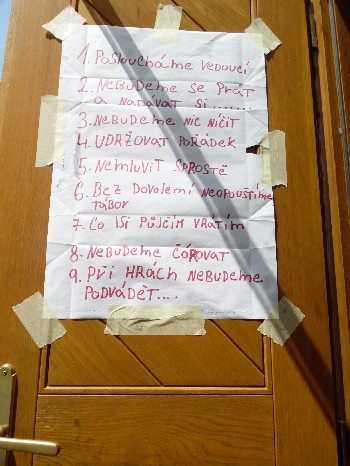 1. POSLOUCHÁME VEDOUCÍ
2. NEBUDEME SE PRÁT
A NADÁVAT SI......
3. NEBUDEME NIC NIČIT
4. UDRŽOVAT POŘÁDEK
5. NEMLUVIT SPROSTĚ
6. BEZ DOVOLENÍ NEOPOUŠTÍME
TÁBOR
7. CO ISI PŮJČÍM VRÁTÍM
8. NEBUDEME ČÓROVAT
9. PŘI HRÁCH NEBUDEME
PODVÁDĚT....